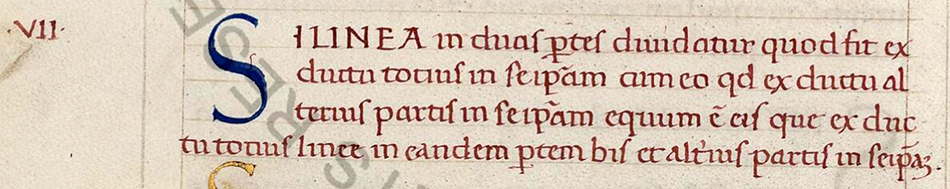 ·VII·
SI LINEA in duas ꝑtes diuidatur quod fit ex
ductu totius in seip̄am cum eo qd ex ductu al
terius partis in seip̄am equum ē eis que ex duc
tu totius linee in eandem ꝑtem bis et alt'ius partis in seip̄aꝫ.